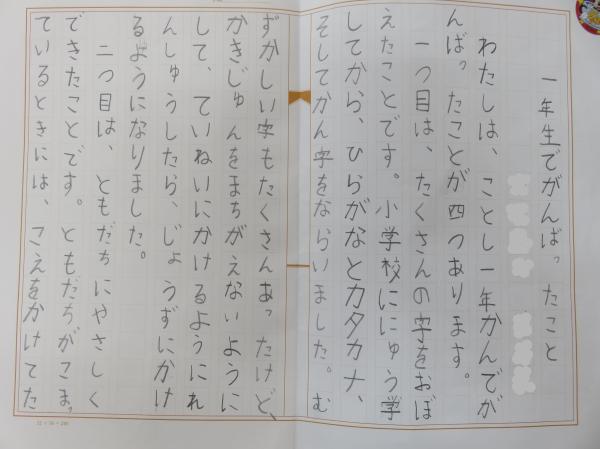 一年生でがんばったこと
わたしは、ことし一年かんでが
んばったことが四つあります。
一つ目は、たくさんの字をおぼ
えたことです。小学校ににゅう学
してから、ひらがなとカタカナ、
そしてかん字をならいました。む
ずかしい字もたくさんあったけど、
かきじゅんをまちがえないように
して、ていねいにかけるようにれ
んしゅうしたら、じょうずにかけ
るようになりました。
二つ目は、ともだちにやさしく
できたことです。ともだちがこまっ
ているときには、こえをかけてた